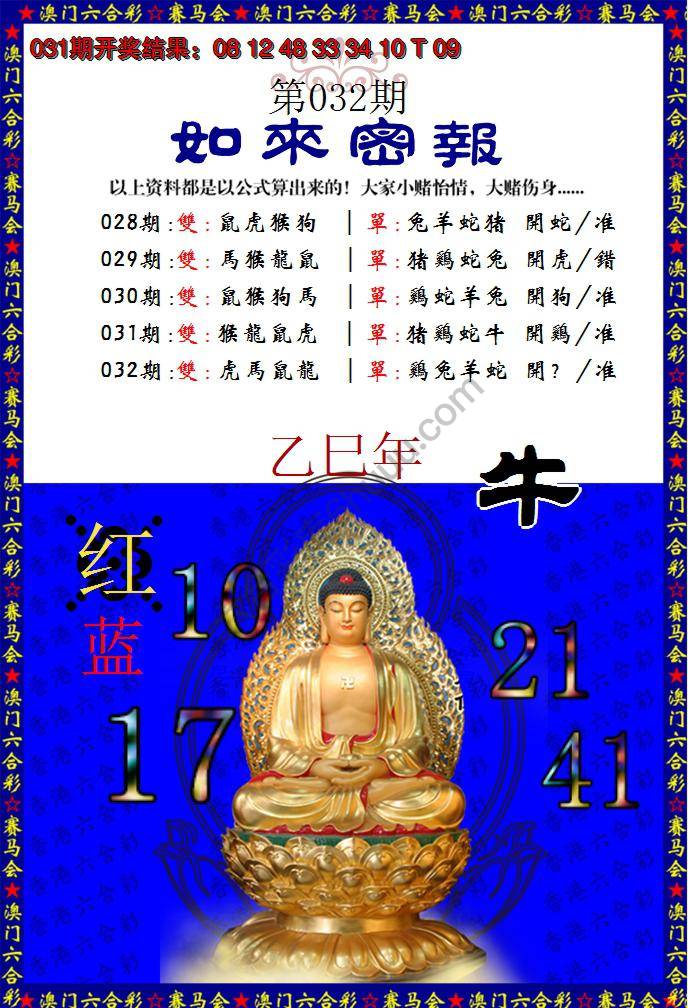 ★澳门六合彩☆赛马会★澳门六合彩☆赛马会★澳门六合彩☆赛马会★
031期开奖结果：08 12 48 33 34 10 T 09
第032期
如來密報
以上资料都是以公式算出来的！大家小赌怡情，大赌伤身......
028期:雙:鼠虎猴狗 | 單:兔羊蛇猪 開蛇/准
029期:雙:馬猴龍鼠 | 單:猪鷄蛇兔 開虎/錯
030期:雙:鼠猴狗馬 | 單:鷄蛇羊兔 開狗/准
031期:雙:猴龍鼠虎 | 單:猪鷄蛇牛 開鷄/准
032期:雙:虎馬鼠龍 | 單:鷄兔羊蛇 開?/准
乙巳年
牛
红
蓝
10
17
21
41
香港六合彩
★澳门六合彩☆赛马会★澳门六合彩☆赛马会★澳门六合彩☆赛马会★